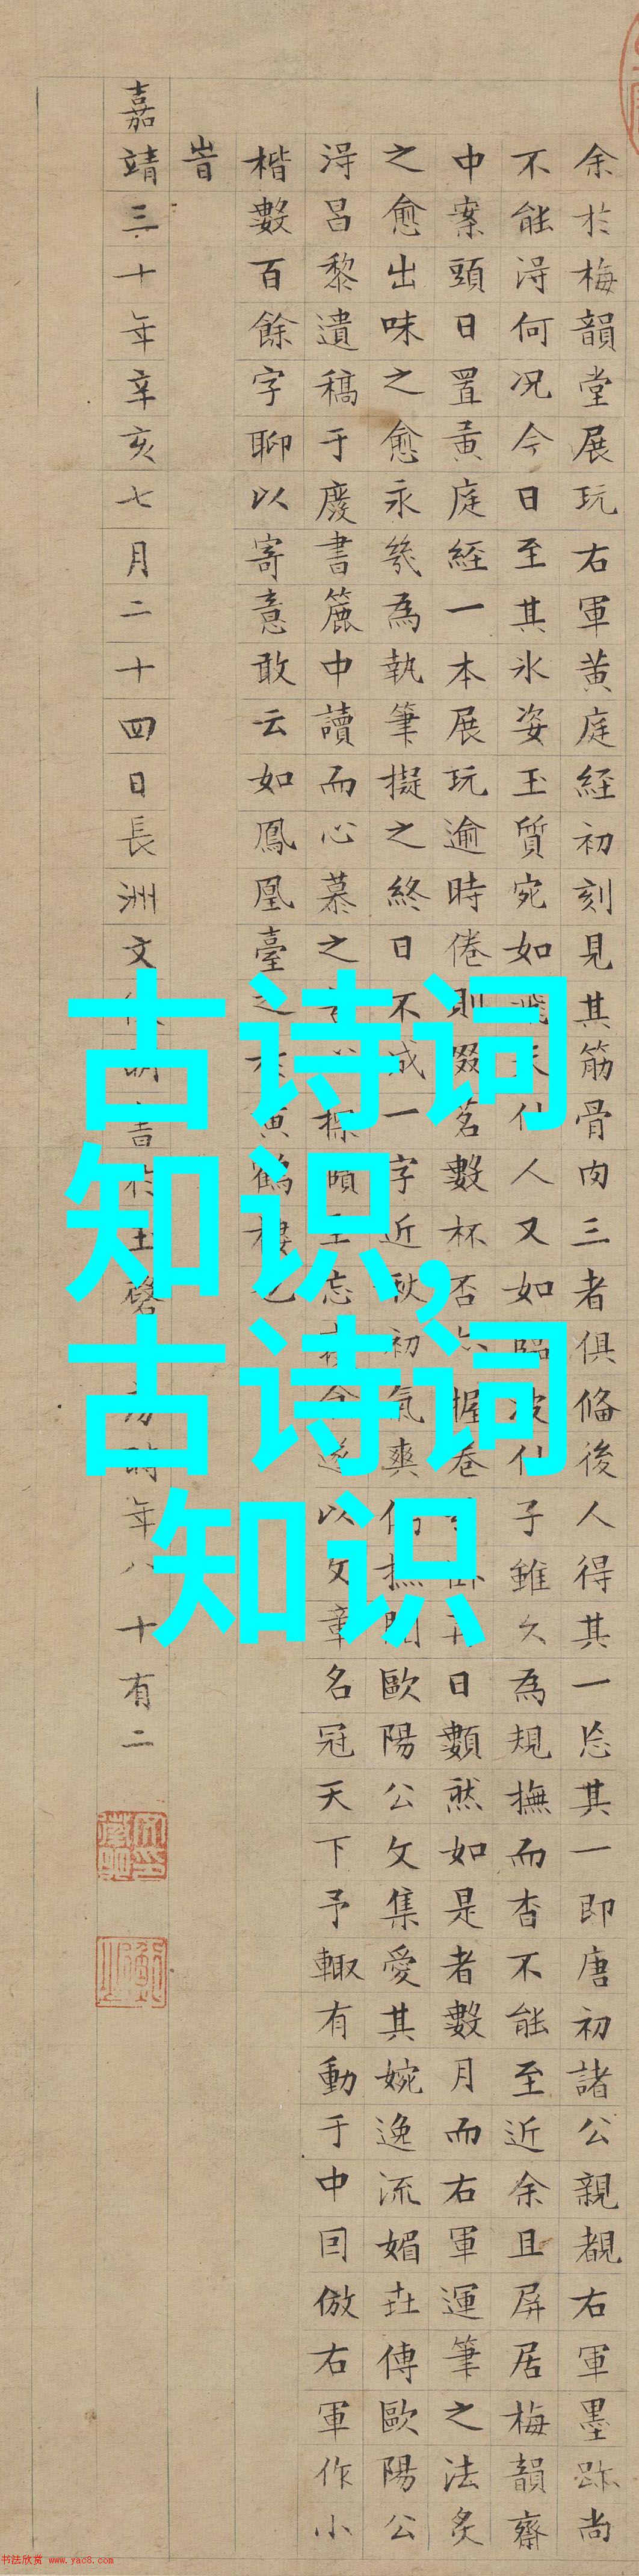 余於梅韻堂展玩右軍黄庭經初刻見其筋骨肉三者俱備後人得其一忘其一即唐初諸公親覩右軍墨跡尚
不能淂何况今日至其氷姿玉質宛如飛天仙人又如臨波仙子雖久為規撫而杳不能至近余且屏居梅韻齋
中案頭日置黄庭經一本展玩逾時倦則啜茗數杯否握卷日數然如是者數月而右軍運筆之法炙
之愈出味之愈永幾為執筆擬之終日不成一字近秋初氣爽偶撫歐陽公文集愛其婉逸流媚世傳歐陽公
淂昌黎遺稿于廢書簏中讀而心慕之探賾至忘遂以文章名冠天下予輙有動于中回倣右軍作小
楷數百餘字聊以寄意敢云如鳳凰臺之於黄鶴樓也
旹
嘉靖三十年辛亥七月二十四日長洲文徵明書於玉磬時年八十有二
古诗词
知识,
古诗词
知识
书法欣赏 www.yac8.com